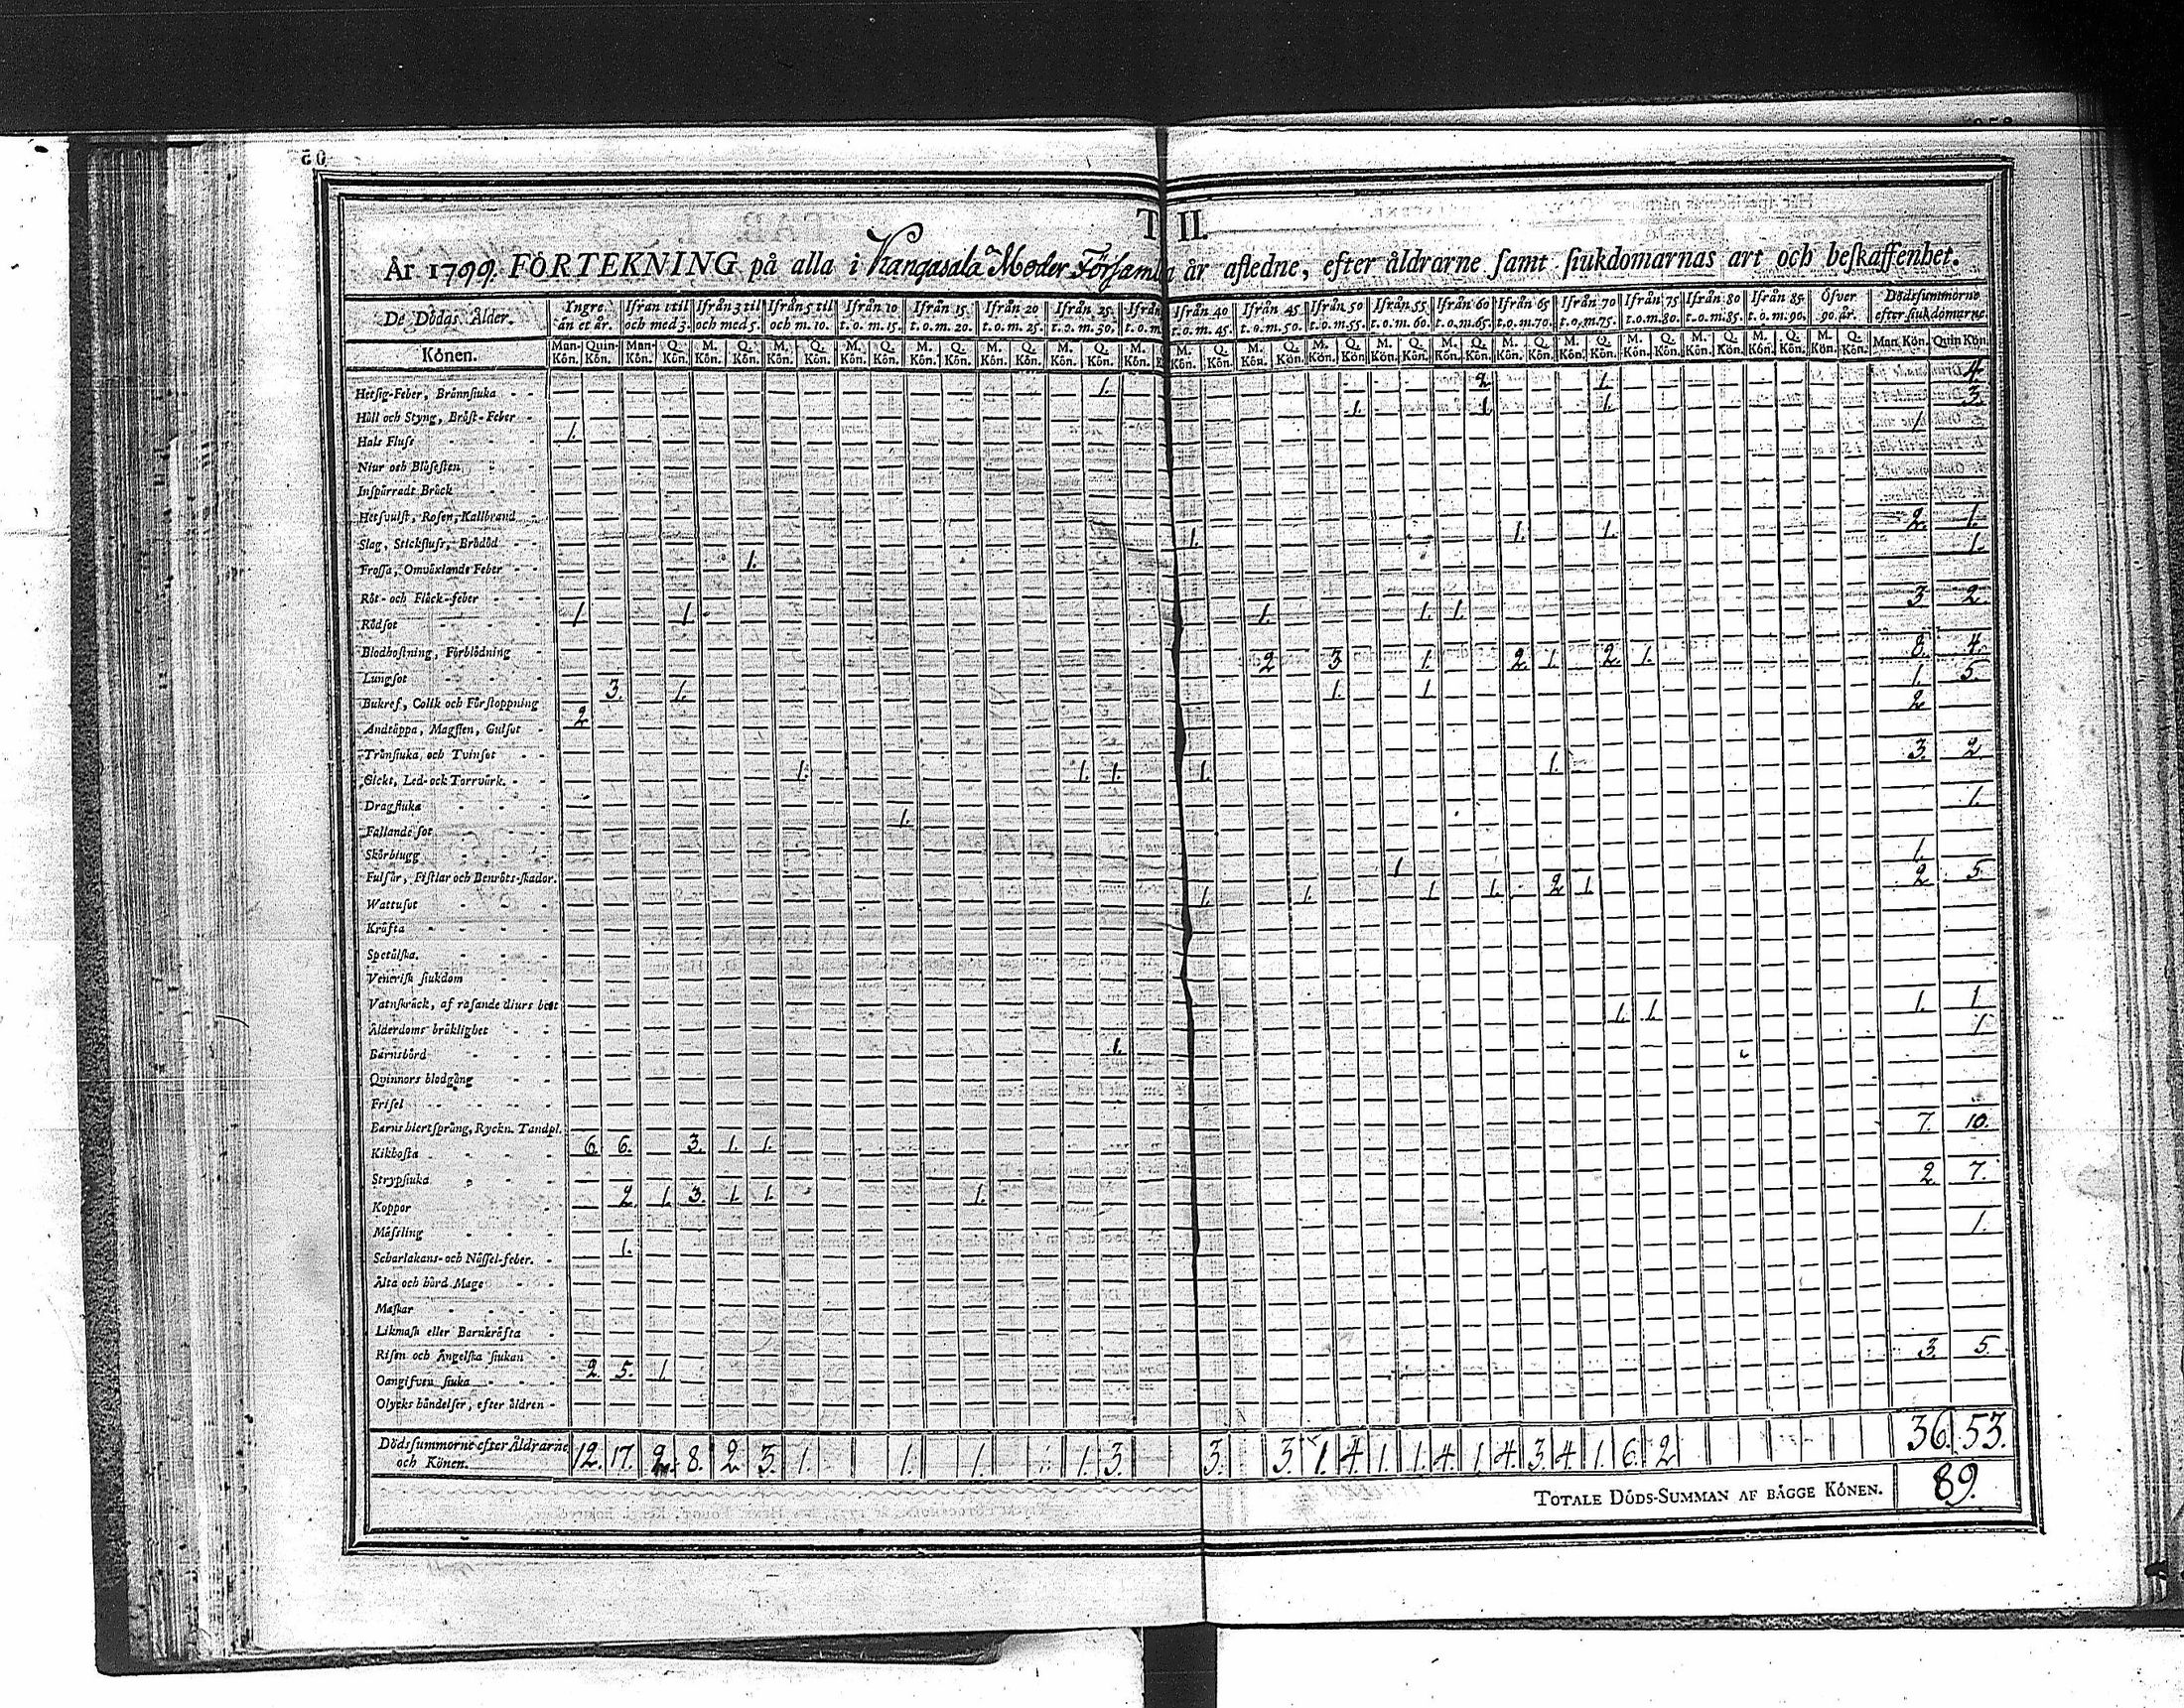 50
T II.
År 1799. FÖRTEKNING på alla i Kangasala Moder Församl a år afledne, efter åldrarne samt siukdomarnas art och beskaffenhet.
De Dödas Ålder. Yngre än et år. Ifrån 1 til och med 3. Ifrån 3 til och med 5. Ifrån 5 til och m. 10. Ifrån 10 t.o.m. 15. Ifrån 15 t.o.m. 20. Ifrån 20 t.o.m. 25. Ifrån 25 t.o.m. 30. Ifrån t.o.m Ifrån 40 t.o.m. 45. Ifrån 45 t.o.m. 50. Ifrån 50 t.o.m. 55. Ifrån 55 t.o.m. 60. Ifrån 60 t.o.m. 65. Ifrån 65 t.o.m. 70. Ifrån 70 t.o.m. 75. Ifrån 75 t.o.m. 80. Ifrån 80 t.o.m. 85. Ifrån 85 t.o.m. 90. Öfver 90 år. Dödssummorne efter siukdomarne
Könen. Man-Kön. Quin-Kön. Man-Kön. Q. Kön. M. Kön. Q. Kön. M. Kön. Q. Kön. M. Kön. Q. Kön. M. Kön. Q. Kön. M. Kön. Q. Kön. M. Kön. Q. Kön. M. Kön. M. Kön. Q. Kön. M. Kön. Q. Kön. M. Kön. Q. Kön. M. Kön. Q. Kön. M. Kön. Q. Kön. M. Kön. Q. Kön. M. Kön. Q. Kön. M. Kön. Q. Kön. M. Kön. Q. Kön. M. Kön. Q. Kön. M. Kön. Q. Kön. Man Kön. Quin Kön
Hetsig-Feber, Brännsiuka 1. 2 1. 4.
Håll och Styng, Bröst-Feber 1. 1. 1. 3.
Hals Fluss 1. 1
Niur och Blåsesten
Inspärradt Bråck
Hetsvulst, Rosen, Kallbrand
Slag, Stickfluss, Brådöd 1. 1. 1. 2. 1.
Frossa, Omväxlande Feber 1. 1.
Röt- och Fläck-feber
Rödsot 1 1 1. 1. 1. 3 2.
Blodhostning, Förblödning
Lungsot 2 3 1. 2. 1. 2. 1. 8. 4.
Bukref, Colik och Förstoppning 3. 1. 1. 1 1. 5.
Andtäppa, Magsten, Gulsot 2. 2
Trånsiuka och Tvinsot
Gickt, Led- och Torrvärk. 1. 1. 1. 1. 1. 3. 2
Dragsiuka
Fallande sot 1. 1.
Skörbiugg
Fulsår, Fistlar och Benröts-skador. 1 1.
Wattusot 1. 1. 1. 1. 2 1. 2 5.
Kräfta
Spetälska.
Venerisk siukdom
Vatnskräck, af rasande diurs bett
Ålderdoms bräklighet 1. 1. 1. 1
Barnsbörd 1. 1
Qvinnors blodgång
Frisel
Barns hiertsprång, Ryckn. Tandpl.
Kikhosta 6. 6. 3. 1. 1. 7. 10.
Strypsiuka
Koppor 2. 1. 3. 1. 1. 1. 2. 7.
Mässling
Scharlakans- och Nässel-feber. 1. 1.
Älta och hård Mage
Maskar
Likmask eller Barnkräfta
Risen och Ängelska siukan
Oangifven siuka 2. 5. 1. 3. 5.
Olycks händelser, efter åldren
Dödssummorne efter Åldrarne och Könen. 12. 17. 2. 8. 2. 3. 1. 1. 1. 1. 3. 3. 3. 1. 4. 1. 1. 4. 1. 4. 3. 4. 1. 6. 2 36. 53.
TOTALE DÖDS-SUMMAN AF BÄGGE KÖNEN. 89.